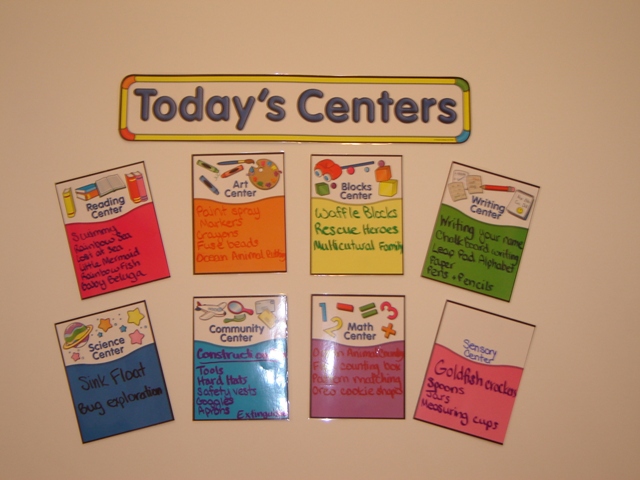 Today's Centers
Reading
Center
Swimmy
Rainbow Sea
Lost at Sea
Little Mermaid
Rainbow Fish
Baby Beluga
Art
Center
Paint spray
Markers
Crayons
Fuse beads
Ocean Animal
Blocks
Center
Waffle Blocks
Rescue Heroes
Multicutural Family
Writing
Center
Writing your name
Chalkboard writing
Leap Pad Alphabet
Paper
Pens + Pencils
Science
Center
Sink Float
Bug exploration
Community
Center
Construction
Tools
Hard Hats
Safety vests
Goggles
Aprons
Extinguisher
1 - = 3
2 + ×
Math
Center
counting box
Pattern matching
Oreo cookie shapes
Sensory
Center
Goldfish crackers
Spoons
Jars
Measuring cups